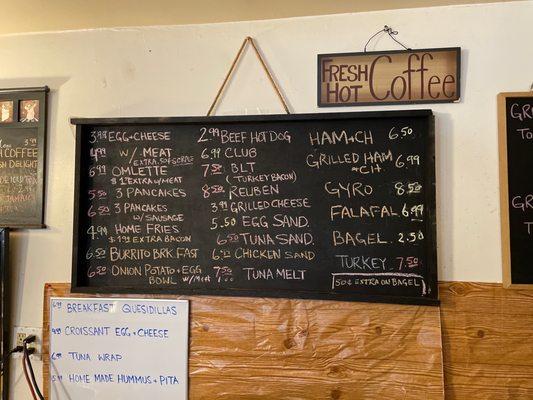 FRESH HOT Coffee
3.99 EGG+CHEESE
4.99 W/ MEAT
6.50 OMLETTE
$1 EXTRA W/MEAT
5.50 3 PANCAKES
6.50 3 PANCAKES
W/SAUSAGE
4.99 HOME FRIES
$1.99 EXTRA BACON
6.50 BURRITO BRKFAST
6.50 ONION POTATO+EGG
BOWL W/MEAT
2.99 BEEF HOT DOG
6.99 CLUB
7.50 BLT
(TURKEY BACON)
8.50 REUBEN
3.99 GRILLED CHEESE
5.50 EGG SAND.
6.50 TUNA SAND.
CHICKEN SAND
7.50 TUNA MELT
HAM+CH 6.50
GRILLED HAM 6.99
+CH
GYRO 8.50
FALAFAL 6.99
BAGEL 2.50
TURKEY 7.50
50¢ EXTRA ON BAGEL
BREAKFAST QUESIDILLAS
CROISSANT EGG+CHEESE
TUNA WRAP
HOME MADE HUMMUS+PITA